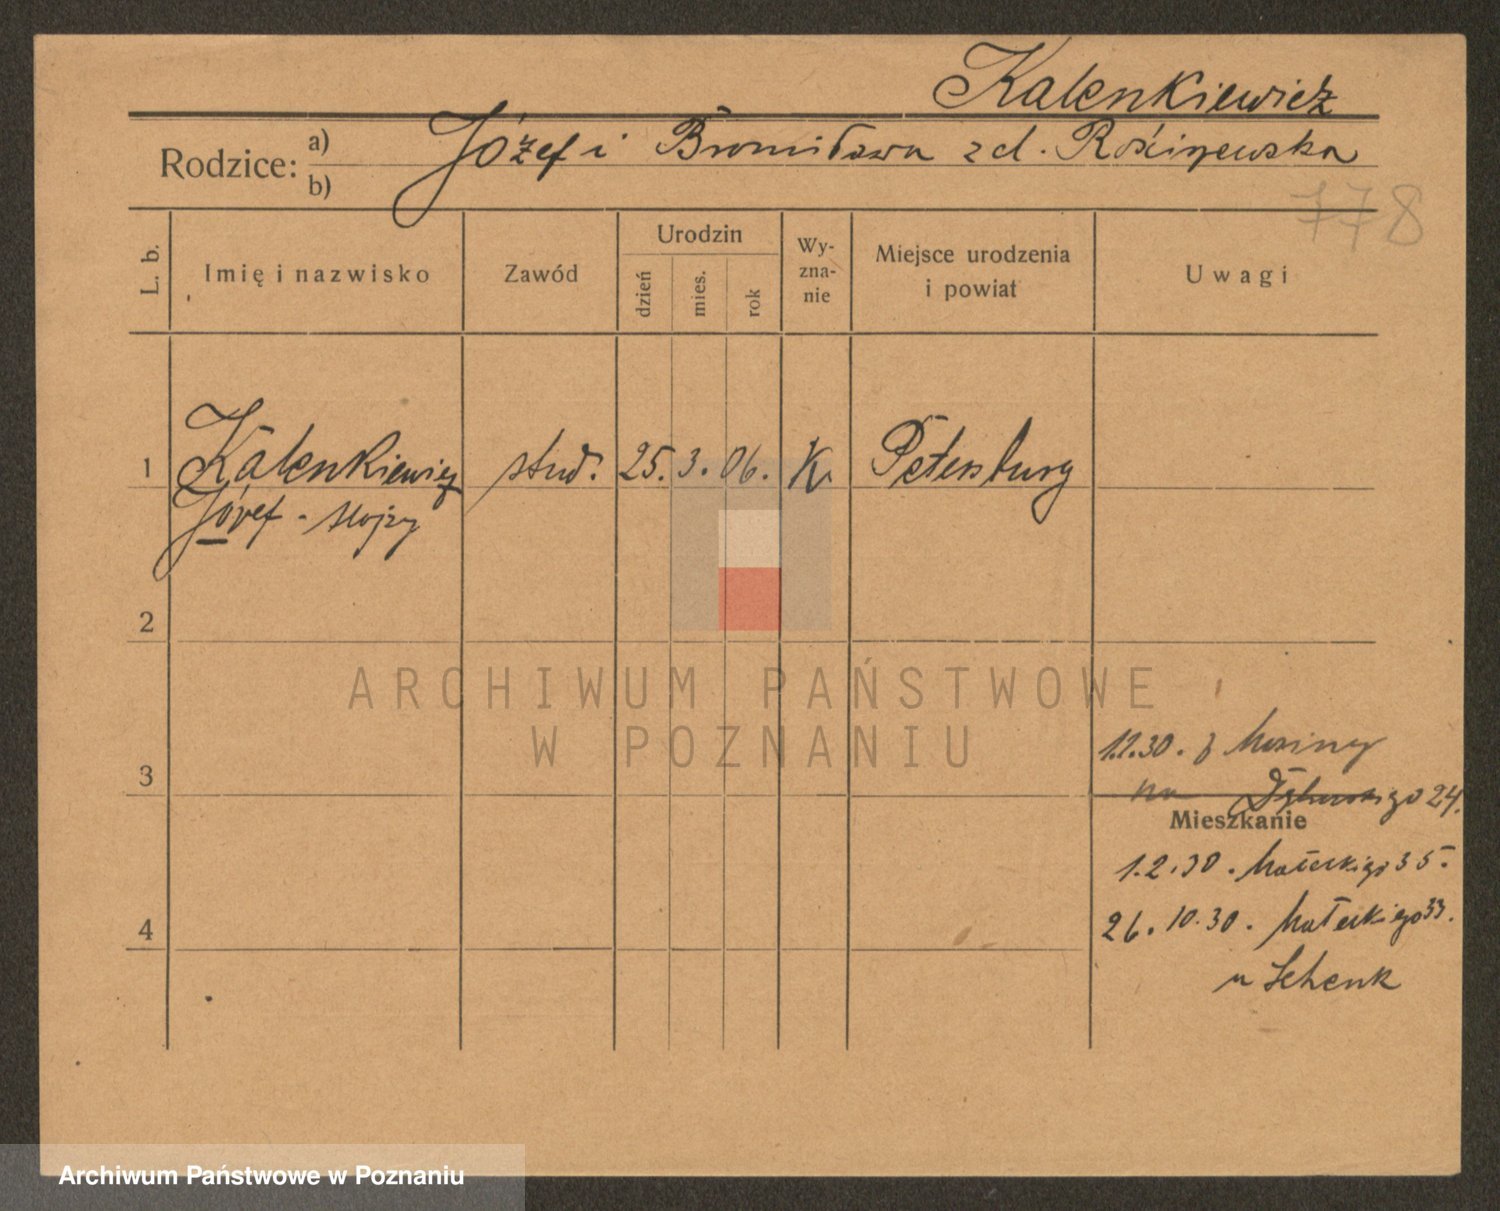 Kalenkiewicz
Rodzice: a) Józef i Bronisława z d. Rościszewska
b)
778
L. b. Imię i nazwisko Zawód Urodzin dzień mies. rok Wy-zna-nie Miejsce urodzenia i powiat Uwagi
1 Kalenkiewicz stud. 25. 3. 06. K. Petersburg
Józef -
2
ARCHIWUM PAŃSTWOWE
W POZNANIU
3 1.2.30. z Mosiny
na 24.
Mieszkanie
1.2.30. Małeckiego 35.
4 26.10.30. Małeckiego 33.
u Schenk
Archiwum Państwowe w Poznaniu